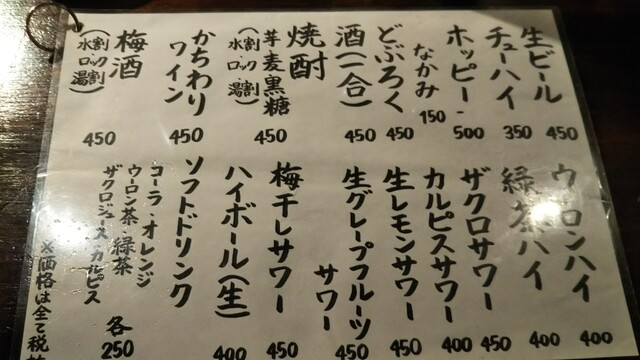 生ビール 450
チューハイ 350
ホッピー 500
なかみ 150
どぶろく 450
酒(一合) 450
焼酎
芋 麦 黒糖
(水割・ロック・湯割) 450
かちわりワイン 450
梅酒
(水割・ロック・湯割) 450
ウーロンハイ 400
緑茶ハイ 400
ザクロサワー 450
カルピスサワー 400
生レモンサワー 450
生グレープフルーツサワー 450
梅干レサワー 450
ハイボール(生) 400
ソフトドリンク
コーラ・オレンジ
ウーロン茶・緑茶
ザクロジュース・カルピス
各250
※価格は全て税